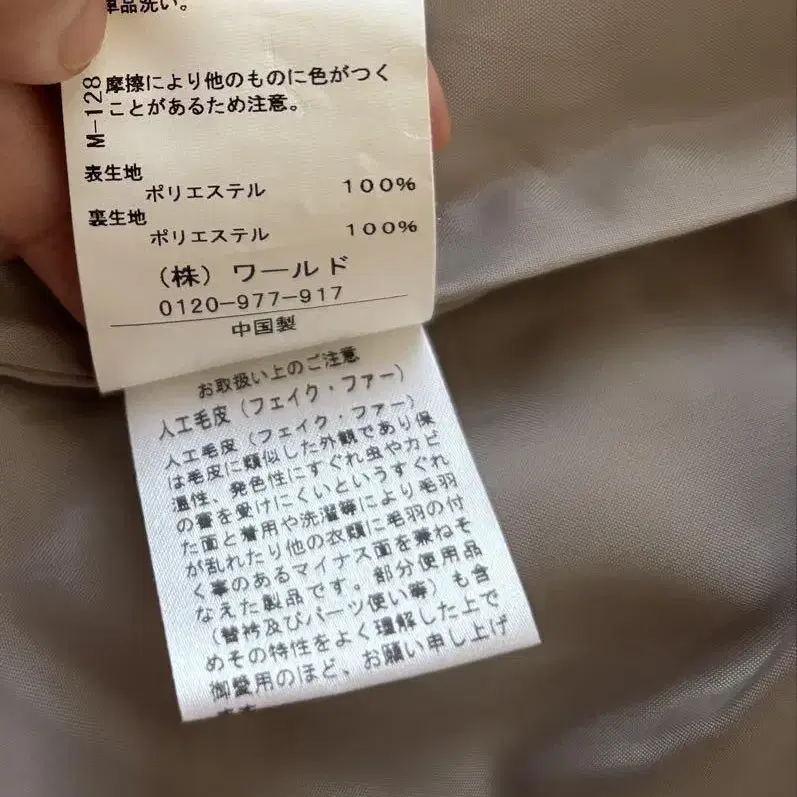 単品洗い。
摩擦により他のものに色がつく
ことがあるため注意。
M-128
表生地
ポリエステル 100%
裏生地
ポリエステル 100%
(株)ワールド
0120-977-917
中国製
お取扱い上のご注意
人工毛皮(フェイク・ファー)
人工毛皮(フェイク・ファー)
は毛皮に類似した外観であり保
温性、発色性にすぐれ虫やカビ
の害を受けにくいというすぐれ
た面と着用や洗濯等により毛羽
が乱れたり他の衣類に毛羽の付
く事のあるマイナス面を兼ねそ
なえた製品です。部分使用品
(替衿及びパーツ使い等)も含
めその特性をよく理解した上で
御愛用のほど、お願い申し上げ